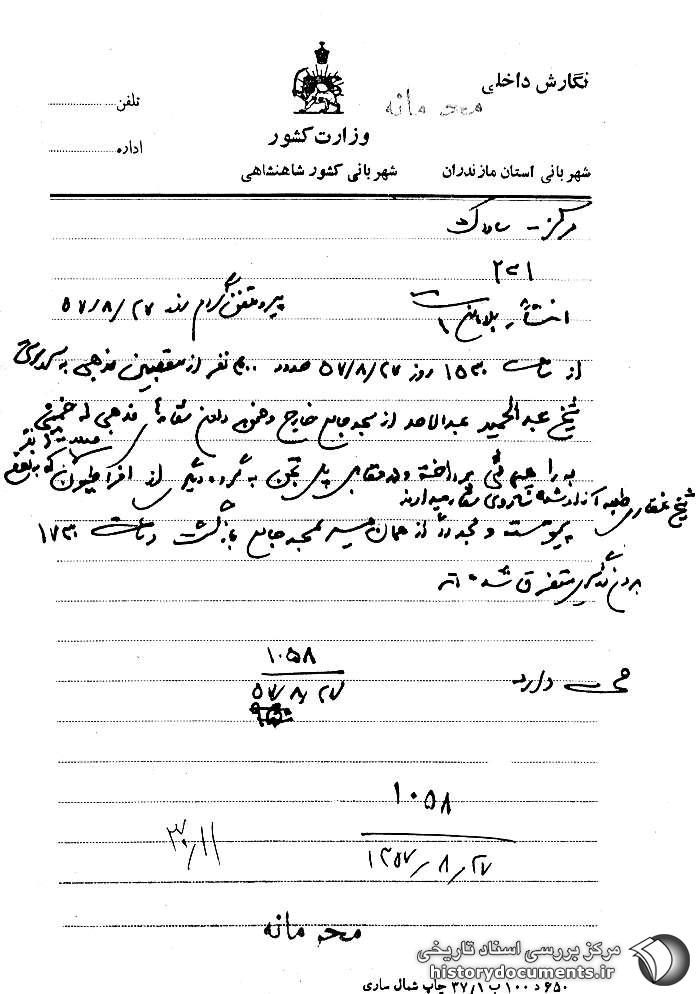 نگارش داخلی
محرمانه
تلفن
وزارت کشور
اداره
شهربانی استان مازندران شهربانی کشور شاهنشاهی
مرکز - ساواک
۲۳۱
پیرو تلفنگرام ۵۷/۸/۲۷
از ساعت ۱۵۳۰ روز ۵۷/۸/۲۷ حدود نفر از متعصبین مذهبی به سرپرستی
شیخ عبدالحمید عبدالاحد از مسجد جامع خارج و ضمن دادن شعارهای مذهبی له خمینی
به راهپیمائی پرداخته و در مقابل پل تجن به گروه دیگری از افراطیون که بنفع
شیخ آزاد شده شعار میدادند
پیوسته و مجدداً از همان مسیر بمسجد جامع بازگشت و ساعت ۱۷۳۰
بدون درگیری متفرق شده اند
۱۰۵۸
۵۷/۸/۲۷
صحت دارد
۱۰۵۸
۱۳۵۷/۸/۲۷
محرمانه
مرکز بررسی اسناد تاریخی
historydocuments.ir
۶۵۰ د ۱۰۰ ب ۳۷/۱ چاپ شمال ساری